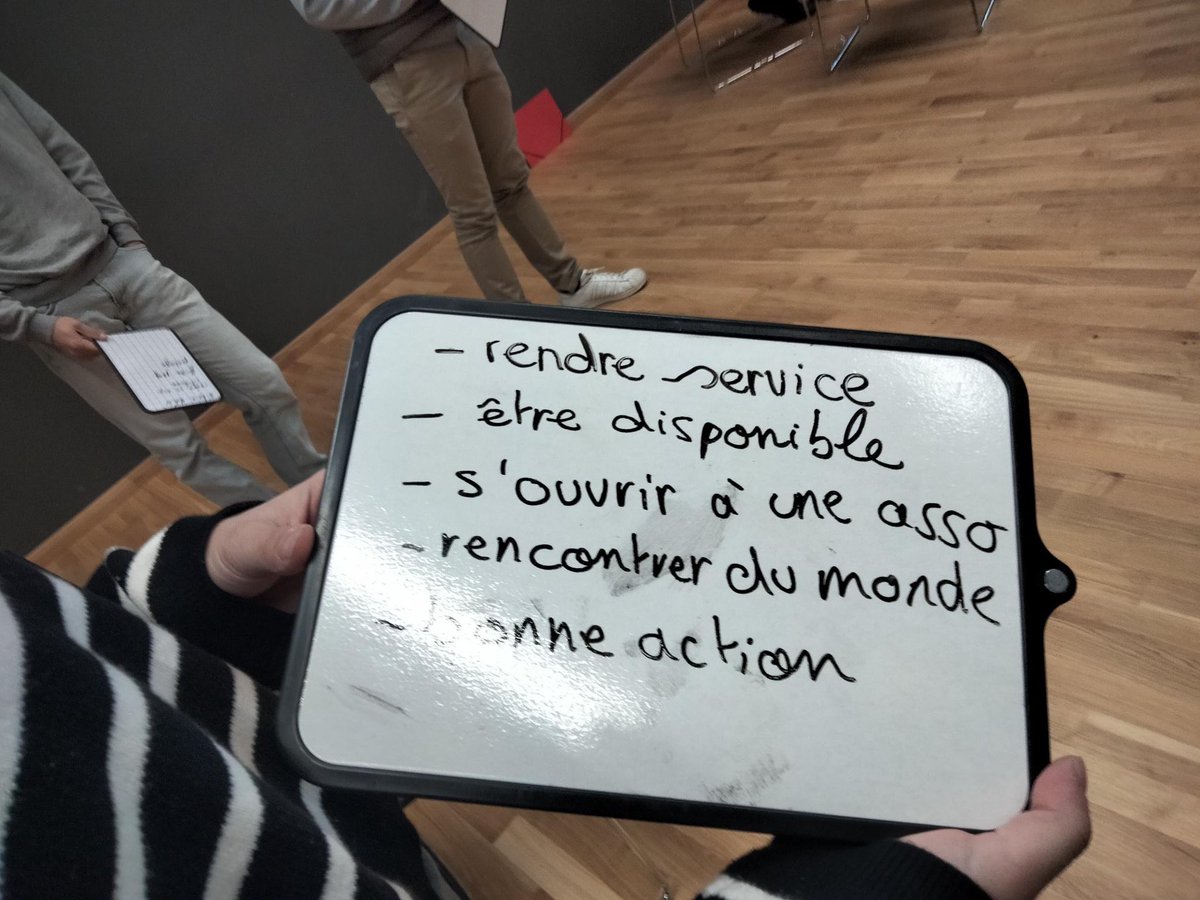 - rendre service
- être disponible
- s'ouvrir à une asso
- rencontrer du monde
- bonne action